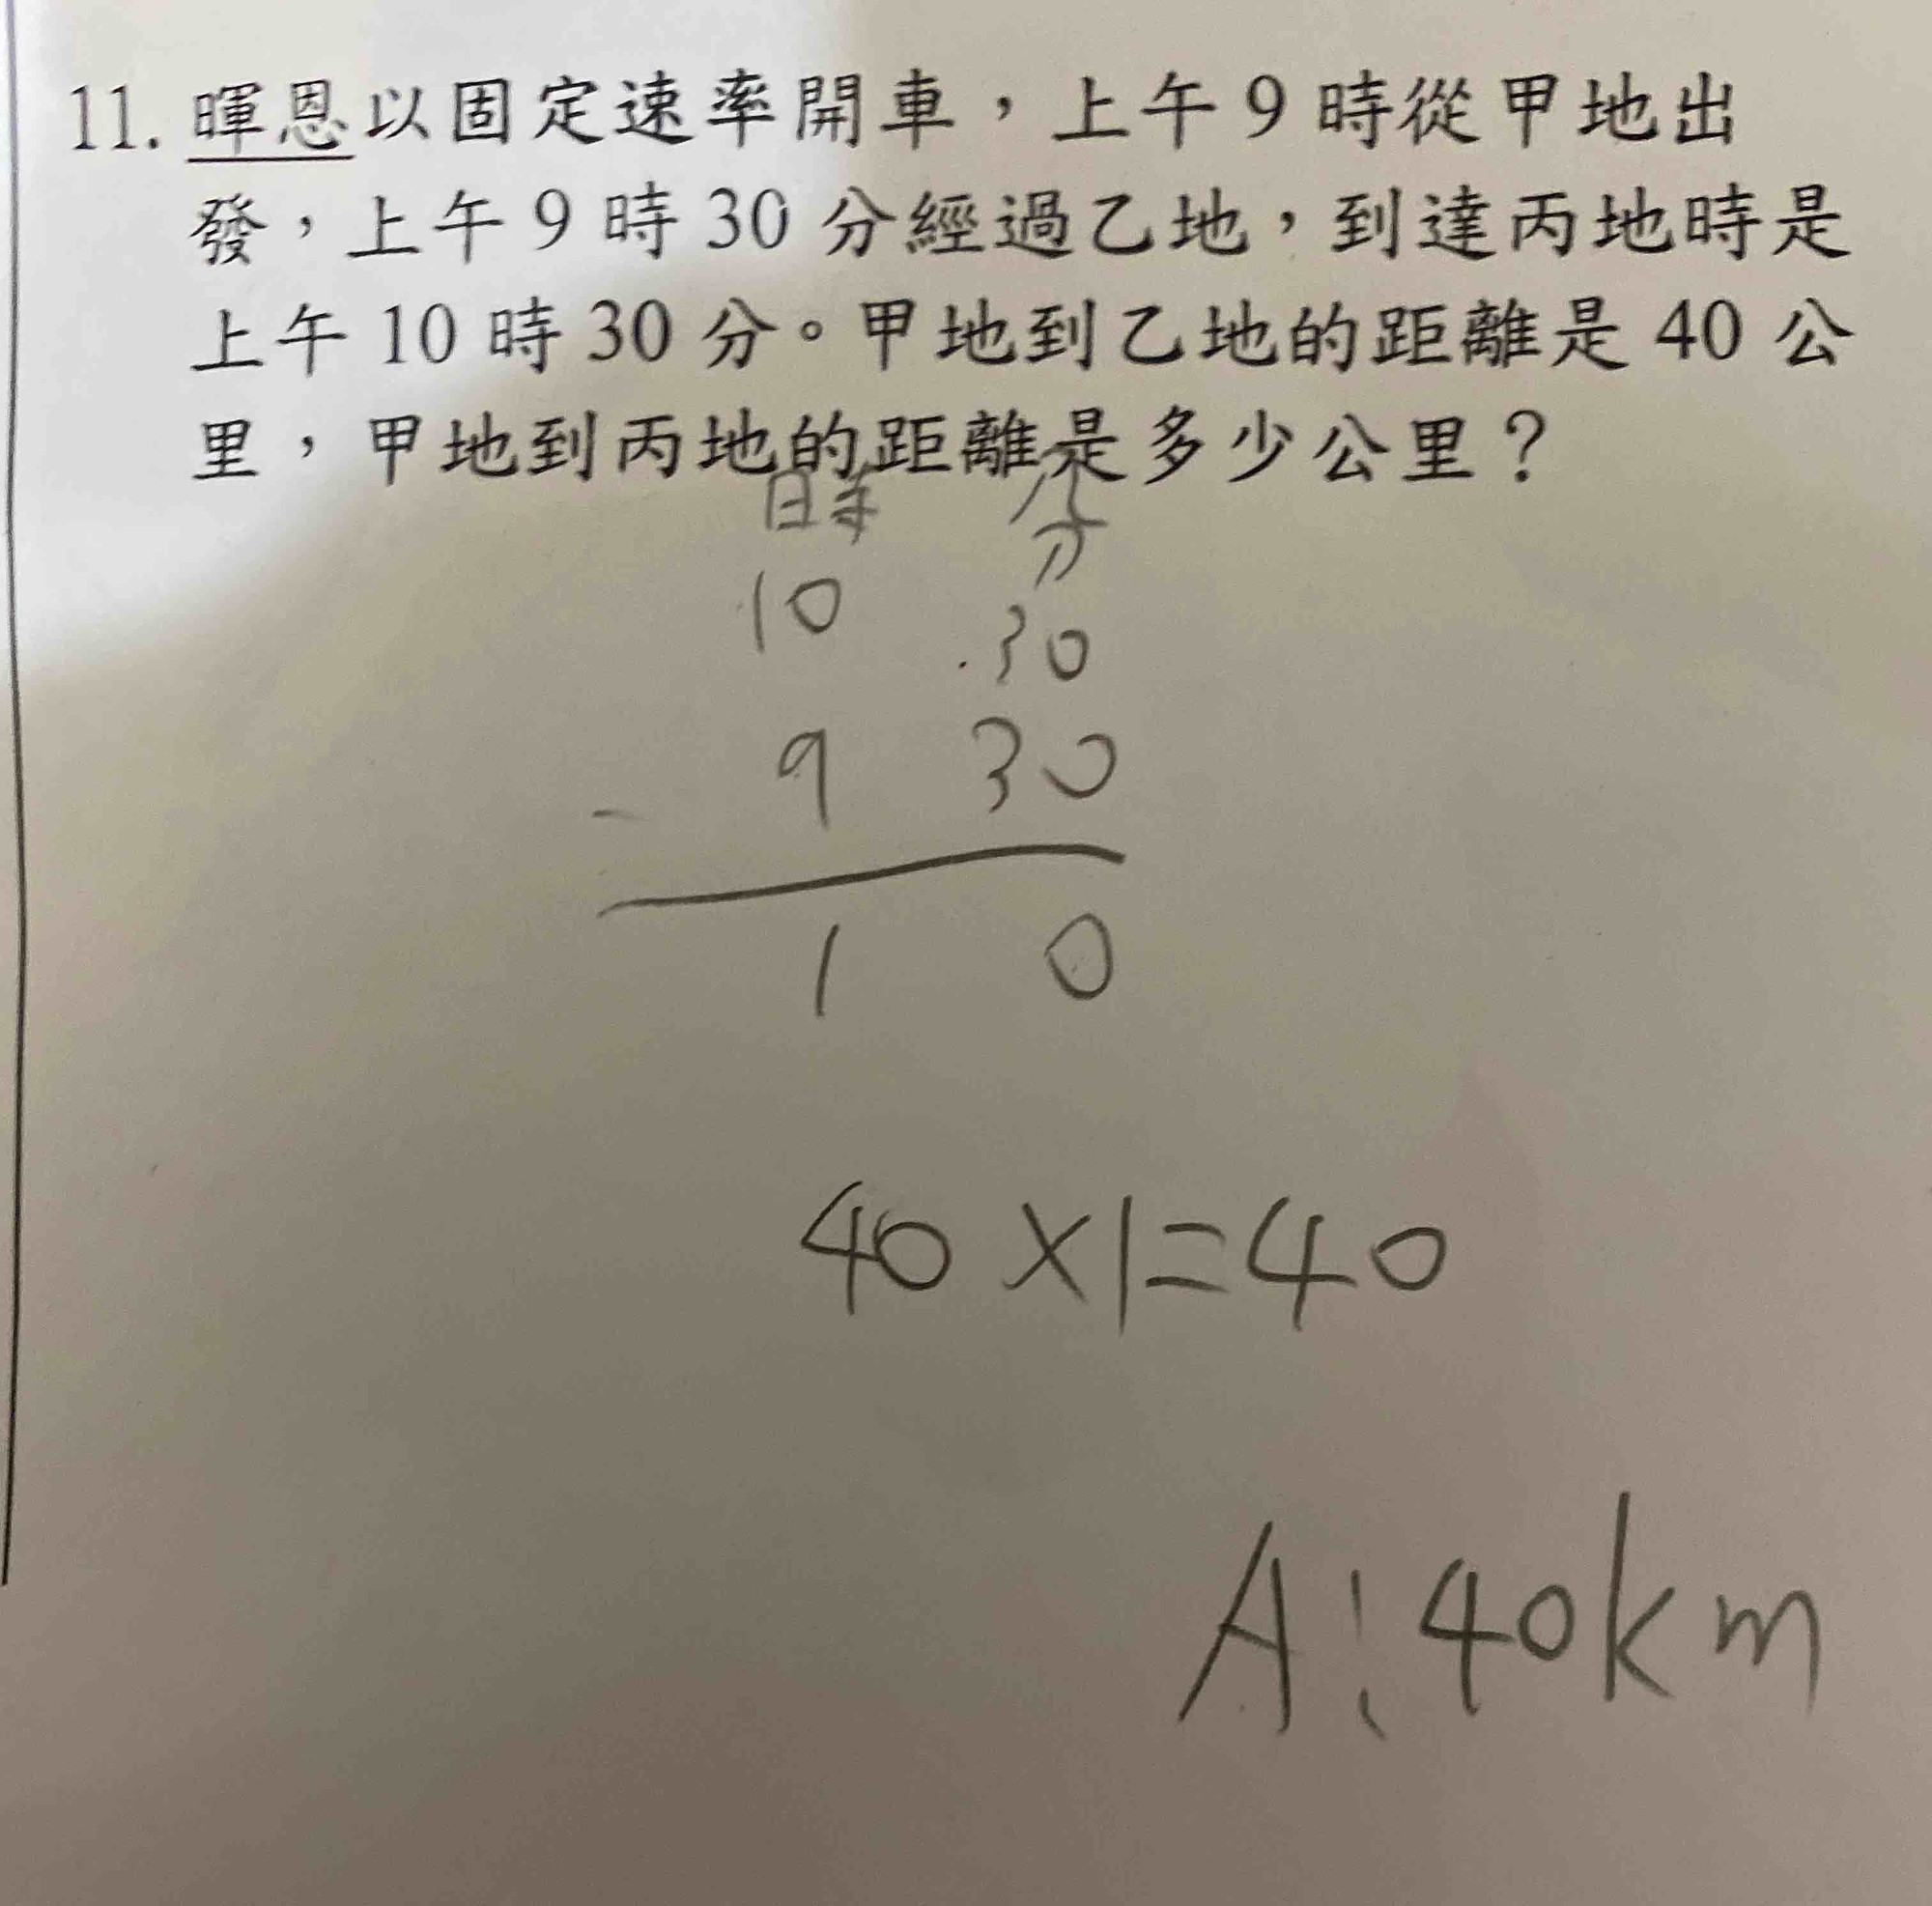 11. 暉恩以固定速率開車，上午 9 時從甲地出
發，上午 9 時 30 分經過乙地，到達丙地時是
上午 10 時 30 分。甲地到乙地的距離是 40 公
里，甲地到丙地的距離是多少公里？
時 分
10 30
- 9 30
1 0
40×1=40
A:40km